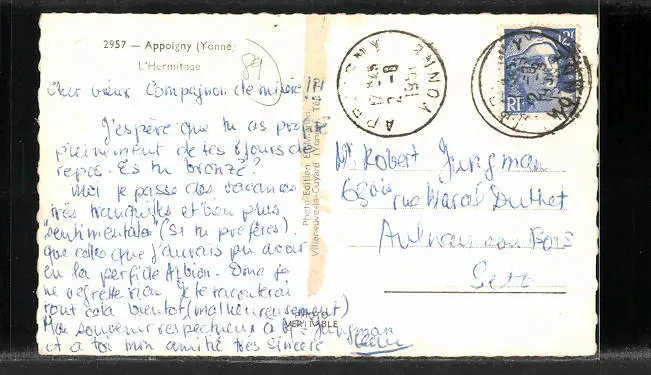 2957 - Appoigny (Yonne)
L'Hermitage
89
Cher vieux Compagnon de misère !!!
J'espère que tu as profité
pleinement de tes 8 jours de
repos. Es tu bronzé ?
Moi je passe des vacances
très tranquilles et bien plus
"sentimentales" (si tu préfères).
que celles que j'aurais pu avoir
en la perfide Albion. Donc je
ne regrette rien je te raconterai
tout cela bientot (malheureusement)
Mon souvenir respectueux à Jungman
et a toi mon amitié très sincère
Photo-Edition
Villeneuve-la-Guyard (Yonne)
VERITABLE
APPOIGNY
YONNE
1951
RF
12F
Mr Robert Jungman
63bis rue Marcel
Aulnay sou Bois